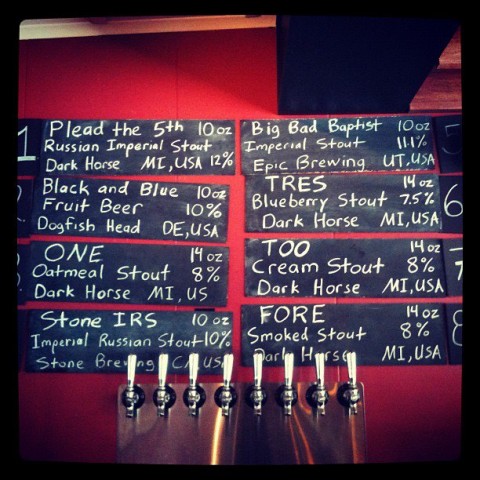 1
Plead the 5th 10oz
Russian Imperial Stout
Dark Horse MI, USA 12%
Black and Blue 10oz
Fruit Beer 10%
Dogfish Head DE, USA
ONE 14oz
Oatmeal Stout 8%
Dark Horse MI, US
Stone IRS 10 oz
Imperial Russian Stout 10%
Stone Brewing CA, USA
Big Bad Baptist 10oz
Imperial Stout 11.1%
Epic Brewing UT, USA
5
TRES 14oz
Blueberry Stout 7.5%
Dark Horse MI, USA
6
TOO 14oz
Cream Stout 8%
Dark Horse MI, USA
7
FORE 14oz
Smoked Stout 8%
Dark Horse MI, USA
8